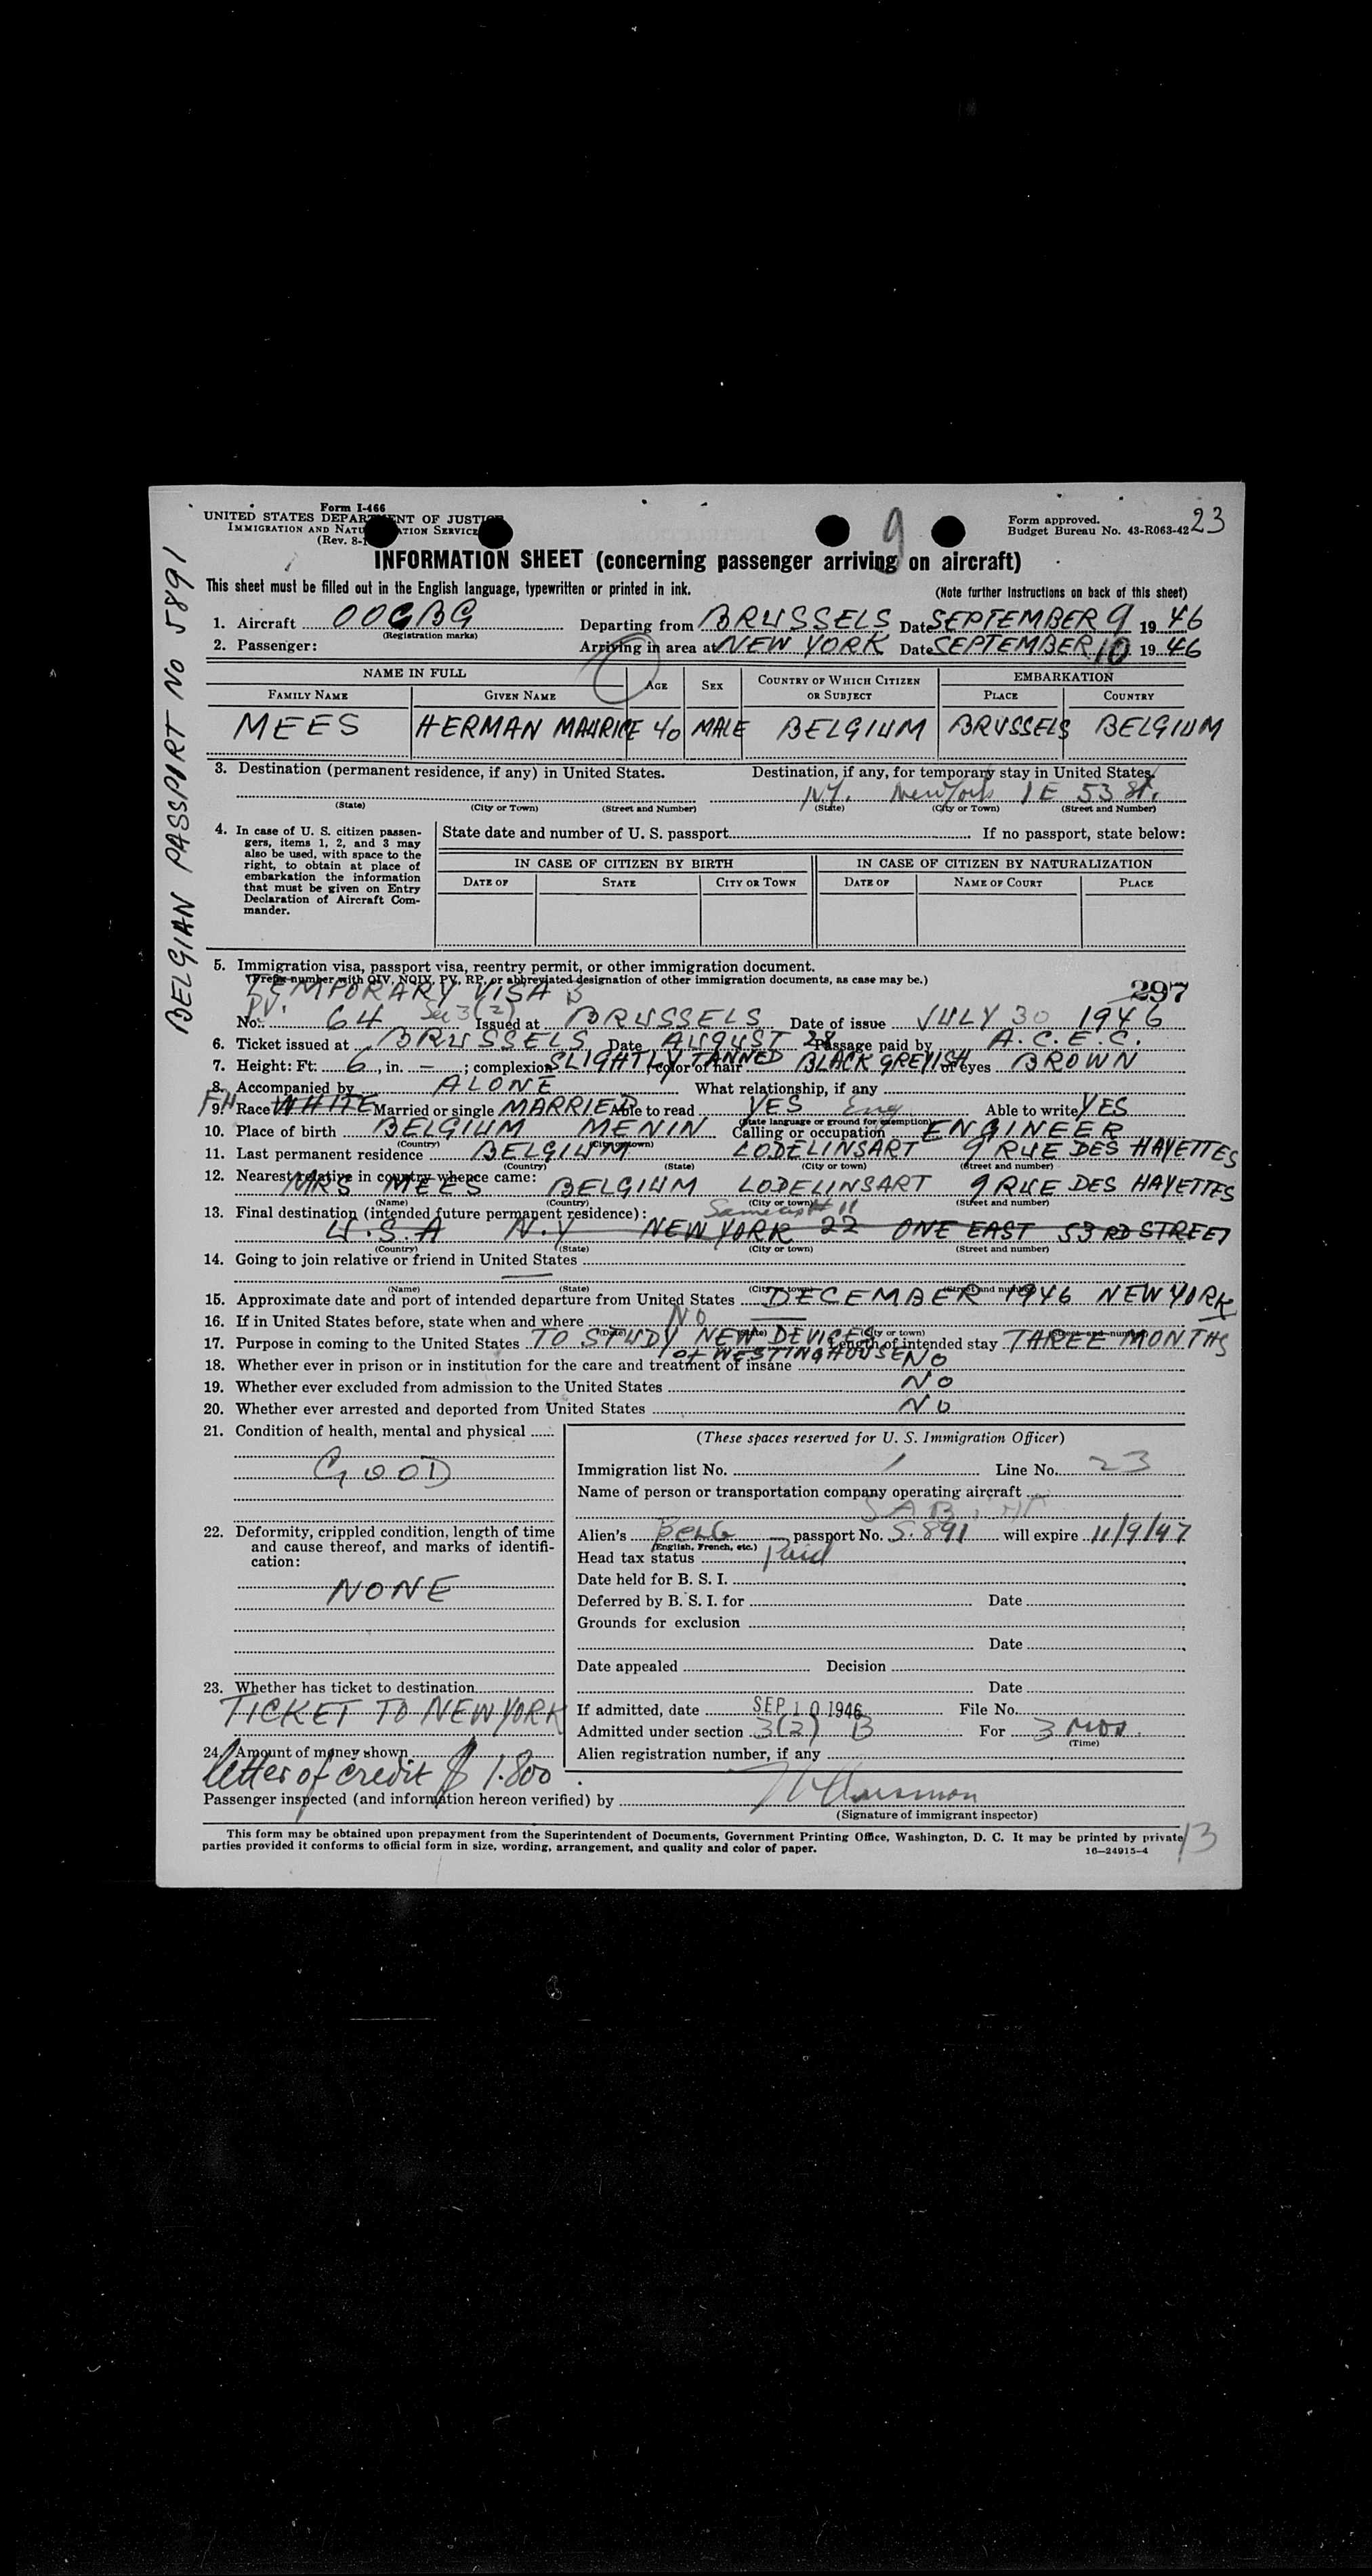 Form I-466
UNITED STATES DEPARTMENT OF JUSTICE
IMMIGRATION AND NATURALIZATION SERVICE
(Rev. 8-1
9
Form approved.
Budget Bureau No. 43-R063-42
23
BELGIAN PASSPORT No 5891
INFORMATION SHEET (concerning passenger arriving on aircraft)
This sheet must be filled out in the English language, typewritten or printed in ink. (Note further instructions on back of this sheet)
1. Aircraft OOCBG Departing from BRUSSELS Date SEPTEMBER 9 1946
(Registration marks)
2. Passenger: Arriving in area at NEW YORK Date SEPTEMBER 10 1946
NAME IN FULL AGE SEX COUNTRY OF WHICH CITIZEN OR SUBJECT EMBARKATION
FAMILY NAME GIVEN NAME PLACE COUNTRY
MEES HERMAN MAURICE 40 MALE BELGIUM BRUSSELS BELGIUM
3. Destination (permanent residence, if any) in United States. Destination, if any, for temporary stay in United States.
N.Y. New York 1 E 53 St.
(State) (City or Town) (Street and Number) (State) (City or Town) (Street and Number)
4. In case of U. S. citizen passengers, items 1, 2, and 3 may also be used, with space to the right, to obtain at place of embarkation the information that must be given on Entry Declaration of Aircraft Commander.
State date and number of U. S. passport If no passport, state below:
IN CASE OF CITIZEN BY BIRTH IN CASE OF CITIZEN BY NATURALIZATION
DATE OF STATE CITY OR TOWN DATE OF NAME OF COURT PLACE
5. Immigration visa, passport visa, reentry permit, or other immigration document.
(Prefix number with QIV, NQIV, PV, RP, or abbreviated designation of other immigration documents, as case may be.)
TEMPORARY VISA B 297
PV. No. 64 Sec 3(2) Issued at BRUSSELS Date of issue JULY 30 1946
6. Ticket issued at BRUSSELS Date AUGUST 28 Passage paid by A.C.E.C.
7. Height: Ft. 6, in. – ; complexion SLIGHTLY TANNED color of hair BLACK GREYISH of eyes BROWN
8. Accompanied by ALONE What relationship, if any
9. Race WHITE Married or single MARRIED Able to read YES Eng Able to write YES
(State language or ground for exemption)
10. Place of birth BELGIUM MENIN Calling or occupation ENGINEER
(Country) (City or town)
11. Last permanent residence BELGIUM LODELINSART 9 RUE DES HAYETTES
(Country) (State) (City or town) (Street and number)
12. Nearest relative in country whence came:
MRS MEES BELGIUM LODELINSART 9 RUE DES HAYETTES
(Name) (Country) (City or town) (Street and number)
13. Final destination (intended future permanent residence): Same as # 11
U.S.A N.Y NEW YORK 22 ONE EAST 53RD STREET
(Country) (State) (City or town) (Street and number)
14. Going to join relative or friend in United States
(Name) (State) (City or town) (Street and number)
15. Approximate date and port of intended departure from United States DECEMBER 1946 NEW YORK
16. If in United States before, state when and where NO
(Date) (State) (City or town) (Street and number)
17. Purpose in coming to the United States TO STUDY NEW DEVICES Length of intended stay THREE MONTHS
OF WESTINGHOUSE
18. Whether ever in prison or in institution for the care and treatment of insane NO
19. Whether ever excluded from admission to the United States NO
20. Whether ever arrested and deported from United States NO
21. Condition of health, mental and physical
GOOD
22. Deformity, crippled condition, length of time and cause thereof, and marks of identification:
NONE
23. Whether has ticket to destination
TICKET TO NEW YORK
24. Amount of money shown
letter of credit $ 1.800.
(These spaces reserved for U. S. Immigration Officer)
Immigration list No. 1 Line No. 23
Name of person or transportation company operating aircraft
Alien's BELG passport No. 5.891 will expire 11/9/47
(English, French, etc.)
Head tax status Paid
Date held for B. S. I.
Deferred by B. S. I. for Date
Grounds for exclusion
Date
Date appealed Decision
Date
If admitted, date SEP 10 1946 File No.
Admitted under section 3(2) B For 3 mos.
(Time)
Alien registration number, if any
Passenger inspected (and information hereon verified) by
(Signature of immigrant inspector)
This form may be obtained upon prepayment from the Superintendent of Documents, Government Printing Office, Washington, D. C. It may be printed by private
parties provided it conforms to official form in size, wording, arrangement, and quality and color of paper. 16—24915-4
13